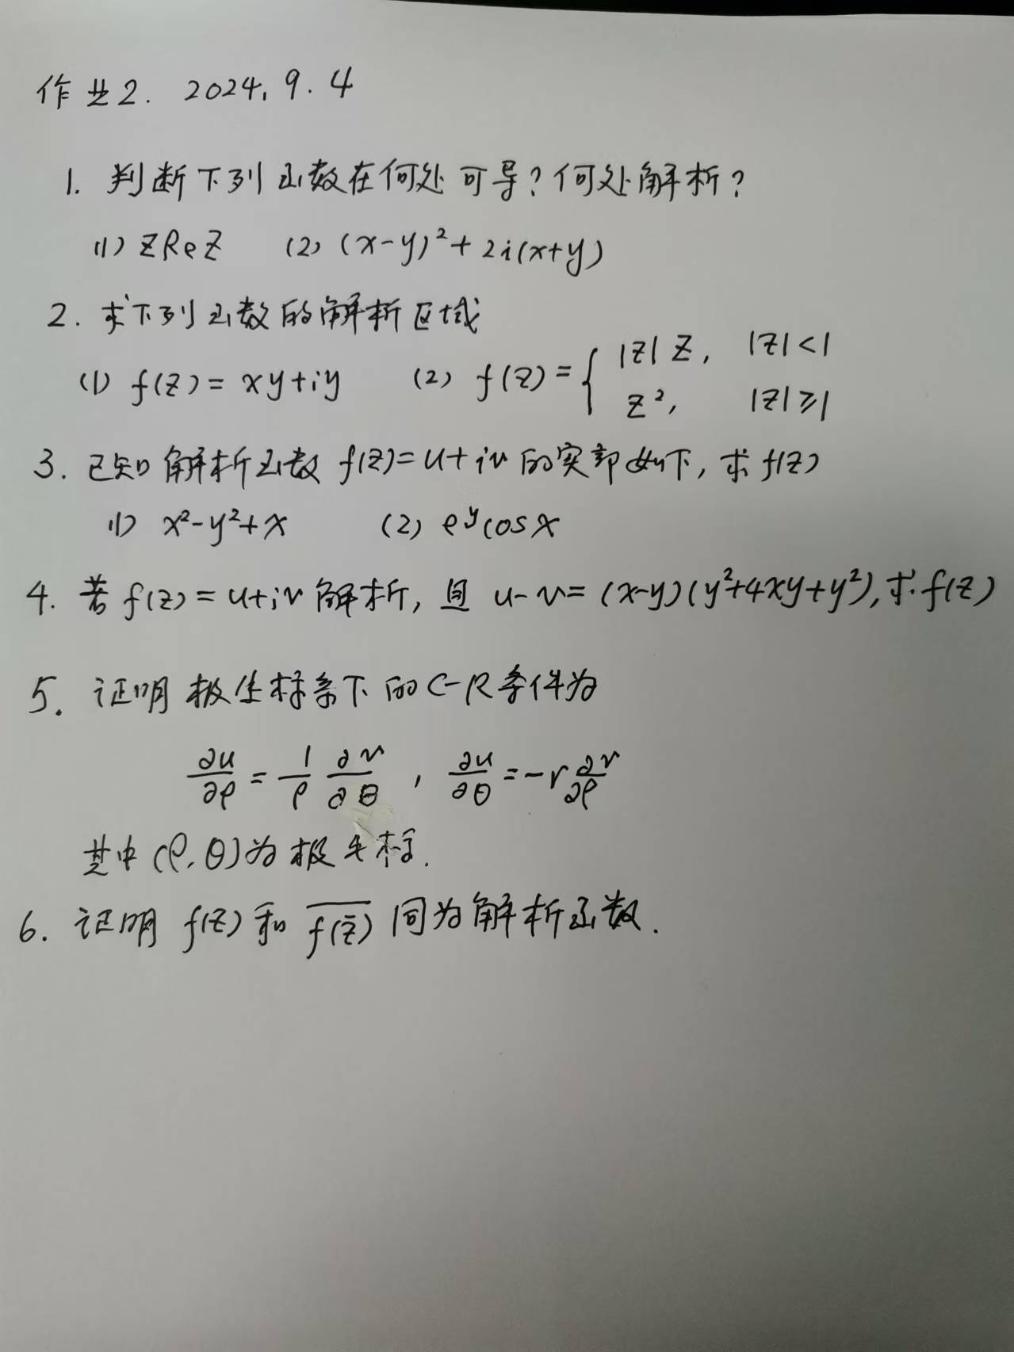 作业2. 2024.9.4
1. 判断下列函数在何处可导?何处解析?
(1) zRez (2) (x-y)²+2i(x+y)
2. 求下列函数的解析区域
(1) f(z)=xy+iy (2) f(z)={ |z|z, |z|<1
z², |z|≥1
3. 已知解析函数 f(z)=u+iv的实部如下, 求f(z)
(1) x²-y²+x (2) e^y cosx
4. 若f(z)=u+iv解析, 且 u-v=(x-y)(y²+4xy+y²), 求f(z)
5. 证明极坐标系下的C-R条件为
∂u/∂ρ = 1/ρ ∂v/∂θ , ∂u/∂θ = -r ∂v/∂ρ
其中(ρ,θ)为极坐标.
6. 证明 f(z) 和 \overline{f(\bar{z})} 同为解析函数.